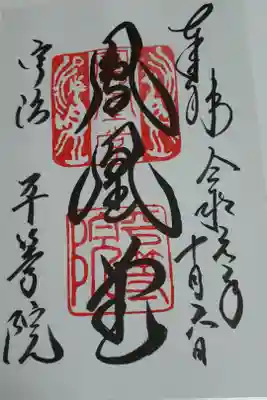 奉拝
令和元年
十月六日
鳳凰堂
宇治
平等院